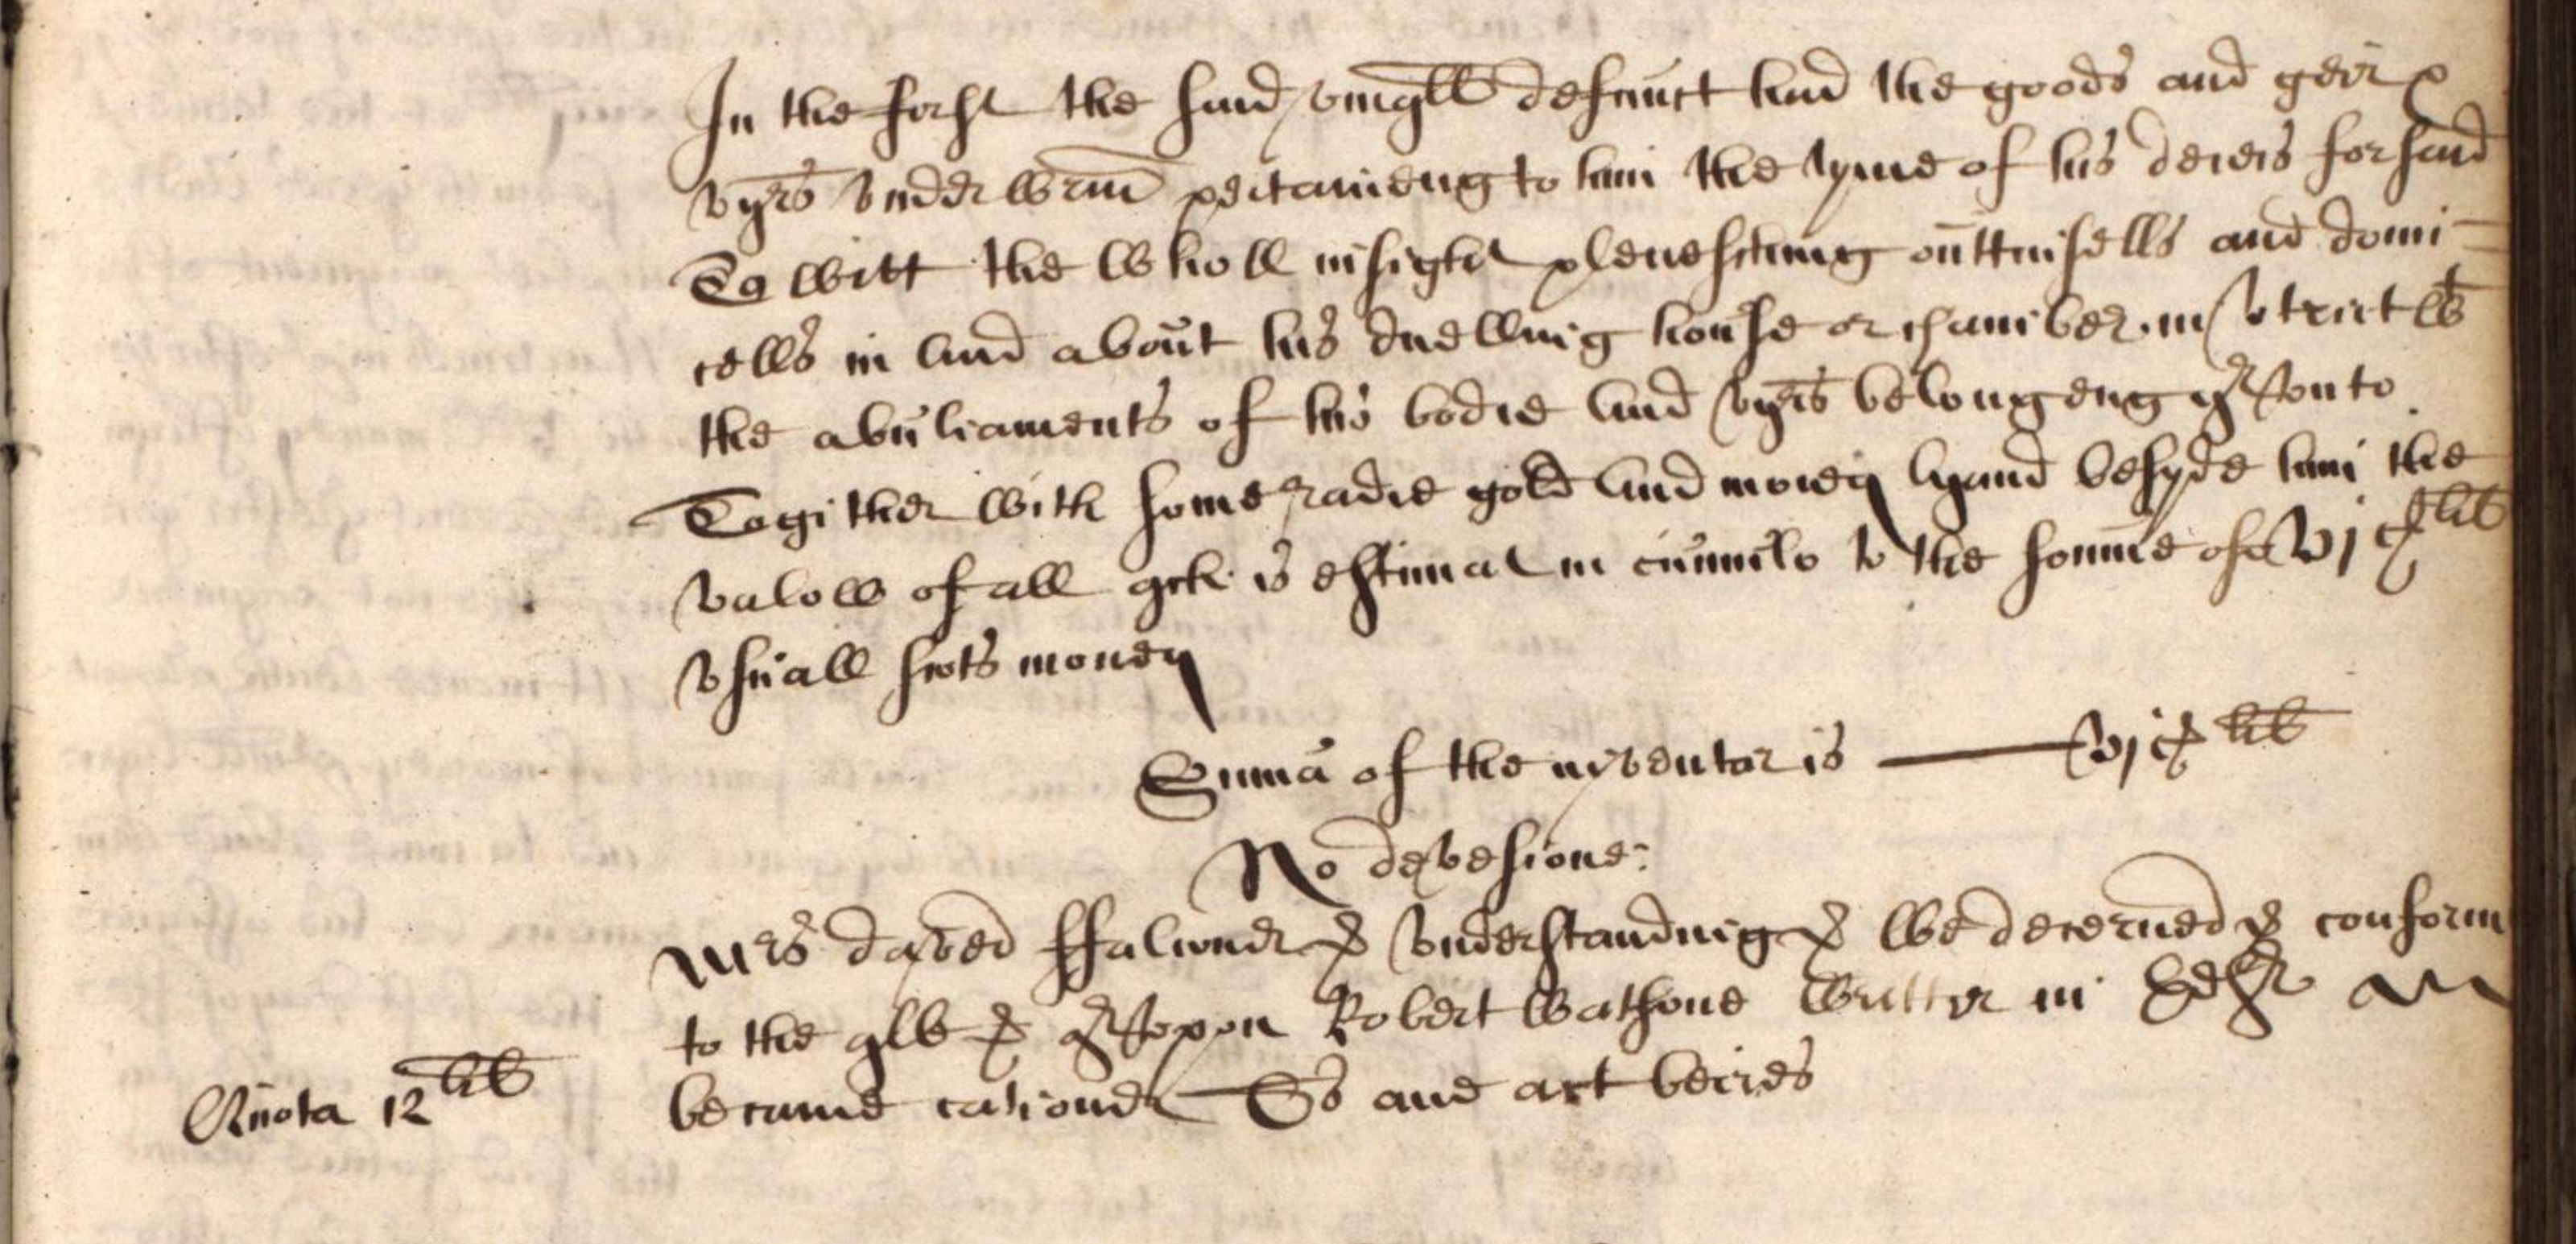 In the first the said umqll defunct had the goods and geir
uyrs underwrtn perteineng to him the tyme of his deceis forsaid
To witt the wholl insight pleneshing outtinsells and domi-
cells in and about his duelling house or chamber in wt
the abuliaments of his bodie and uyris belongeng yrunto
Togither with some radie gold and money lyand besyde him the
valow of all qch is estimat in cumulo to the soume of vjc lib
usuall scots money
Suma of the inventar is — vjc lib
No devesione:
Mrs daved ffalconer & understanding & we decerned & conform
to the & yrupon Robert Watsone wrytter in Edr
Quota 12 lib became cationer So and act beires